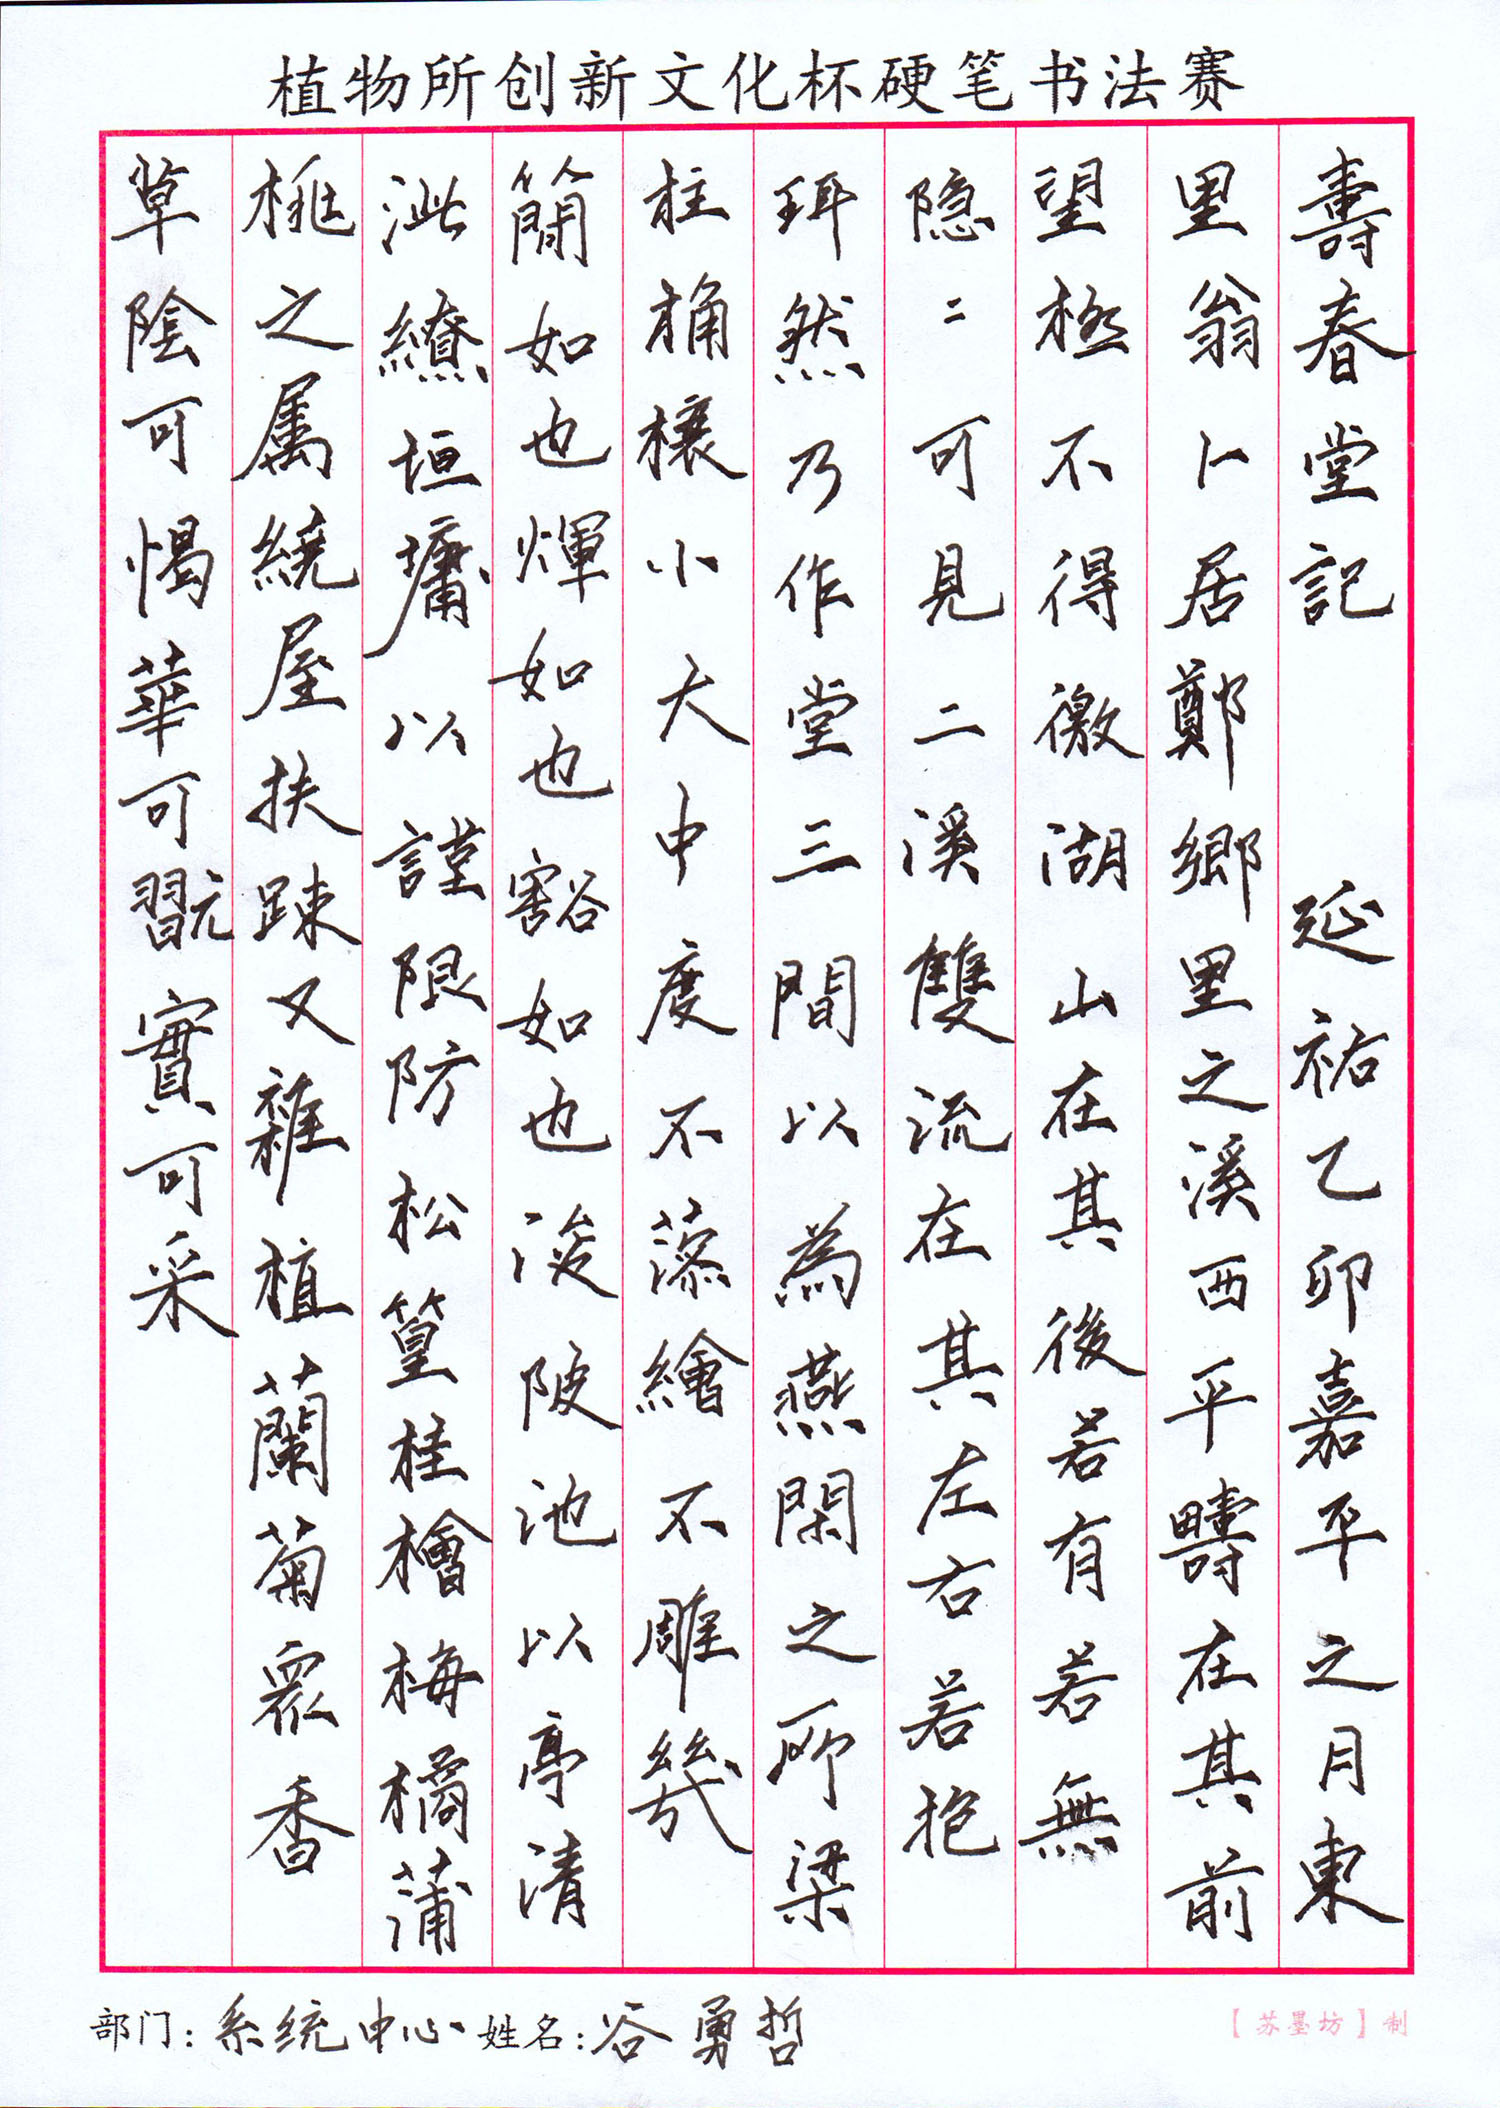 植物所创新文化杯硬笔书法赛
壽春堂記 延祐乙卯嘉平之月東
里翁卜居鄭鄉里之溪西平疇在其前
望極不得徼湖山在其後若有若無
隐〻可見二溪雙流在其左右若抱
珥然乃作堂三間以為燕閑之所梁
柱桷榱小大中度不藻繪不雕幾
簡如也煇如也豁如也浚陂池以亭清
泚繚垣墉以謹限防松篁桂檜梅橘蒲
桃之属繞屋扶踈又雜植蘭菊眾香
草陰可愒華可翫實可采
部门：系统中心 姓名：谷勇哲
【苏墨坊】制